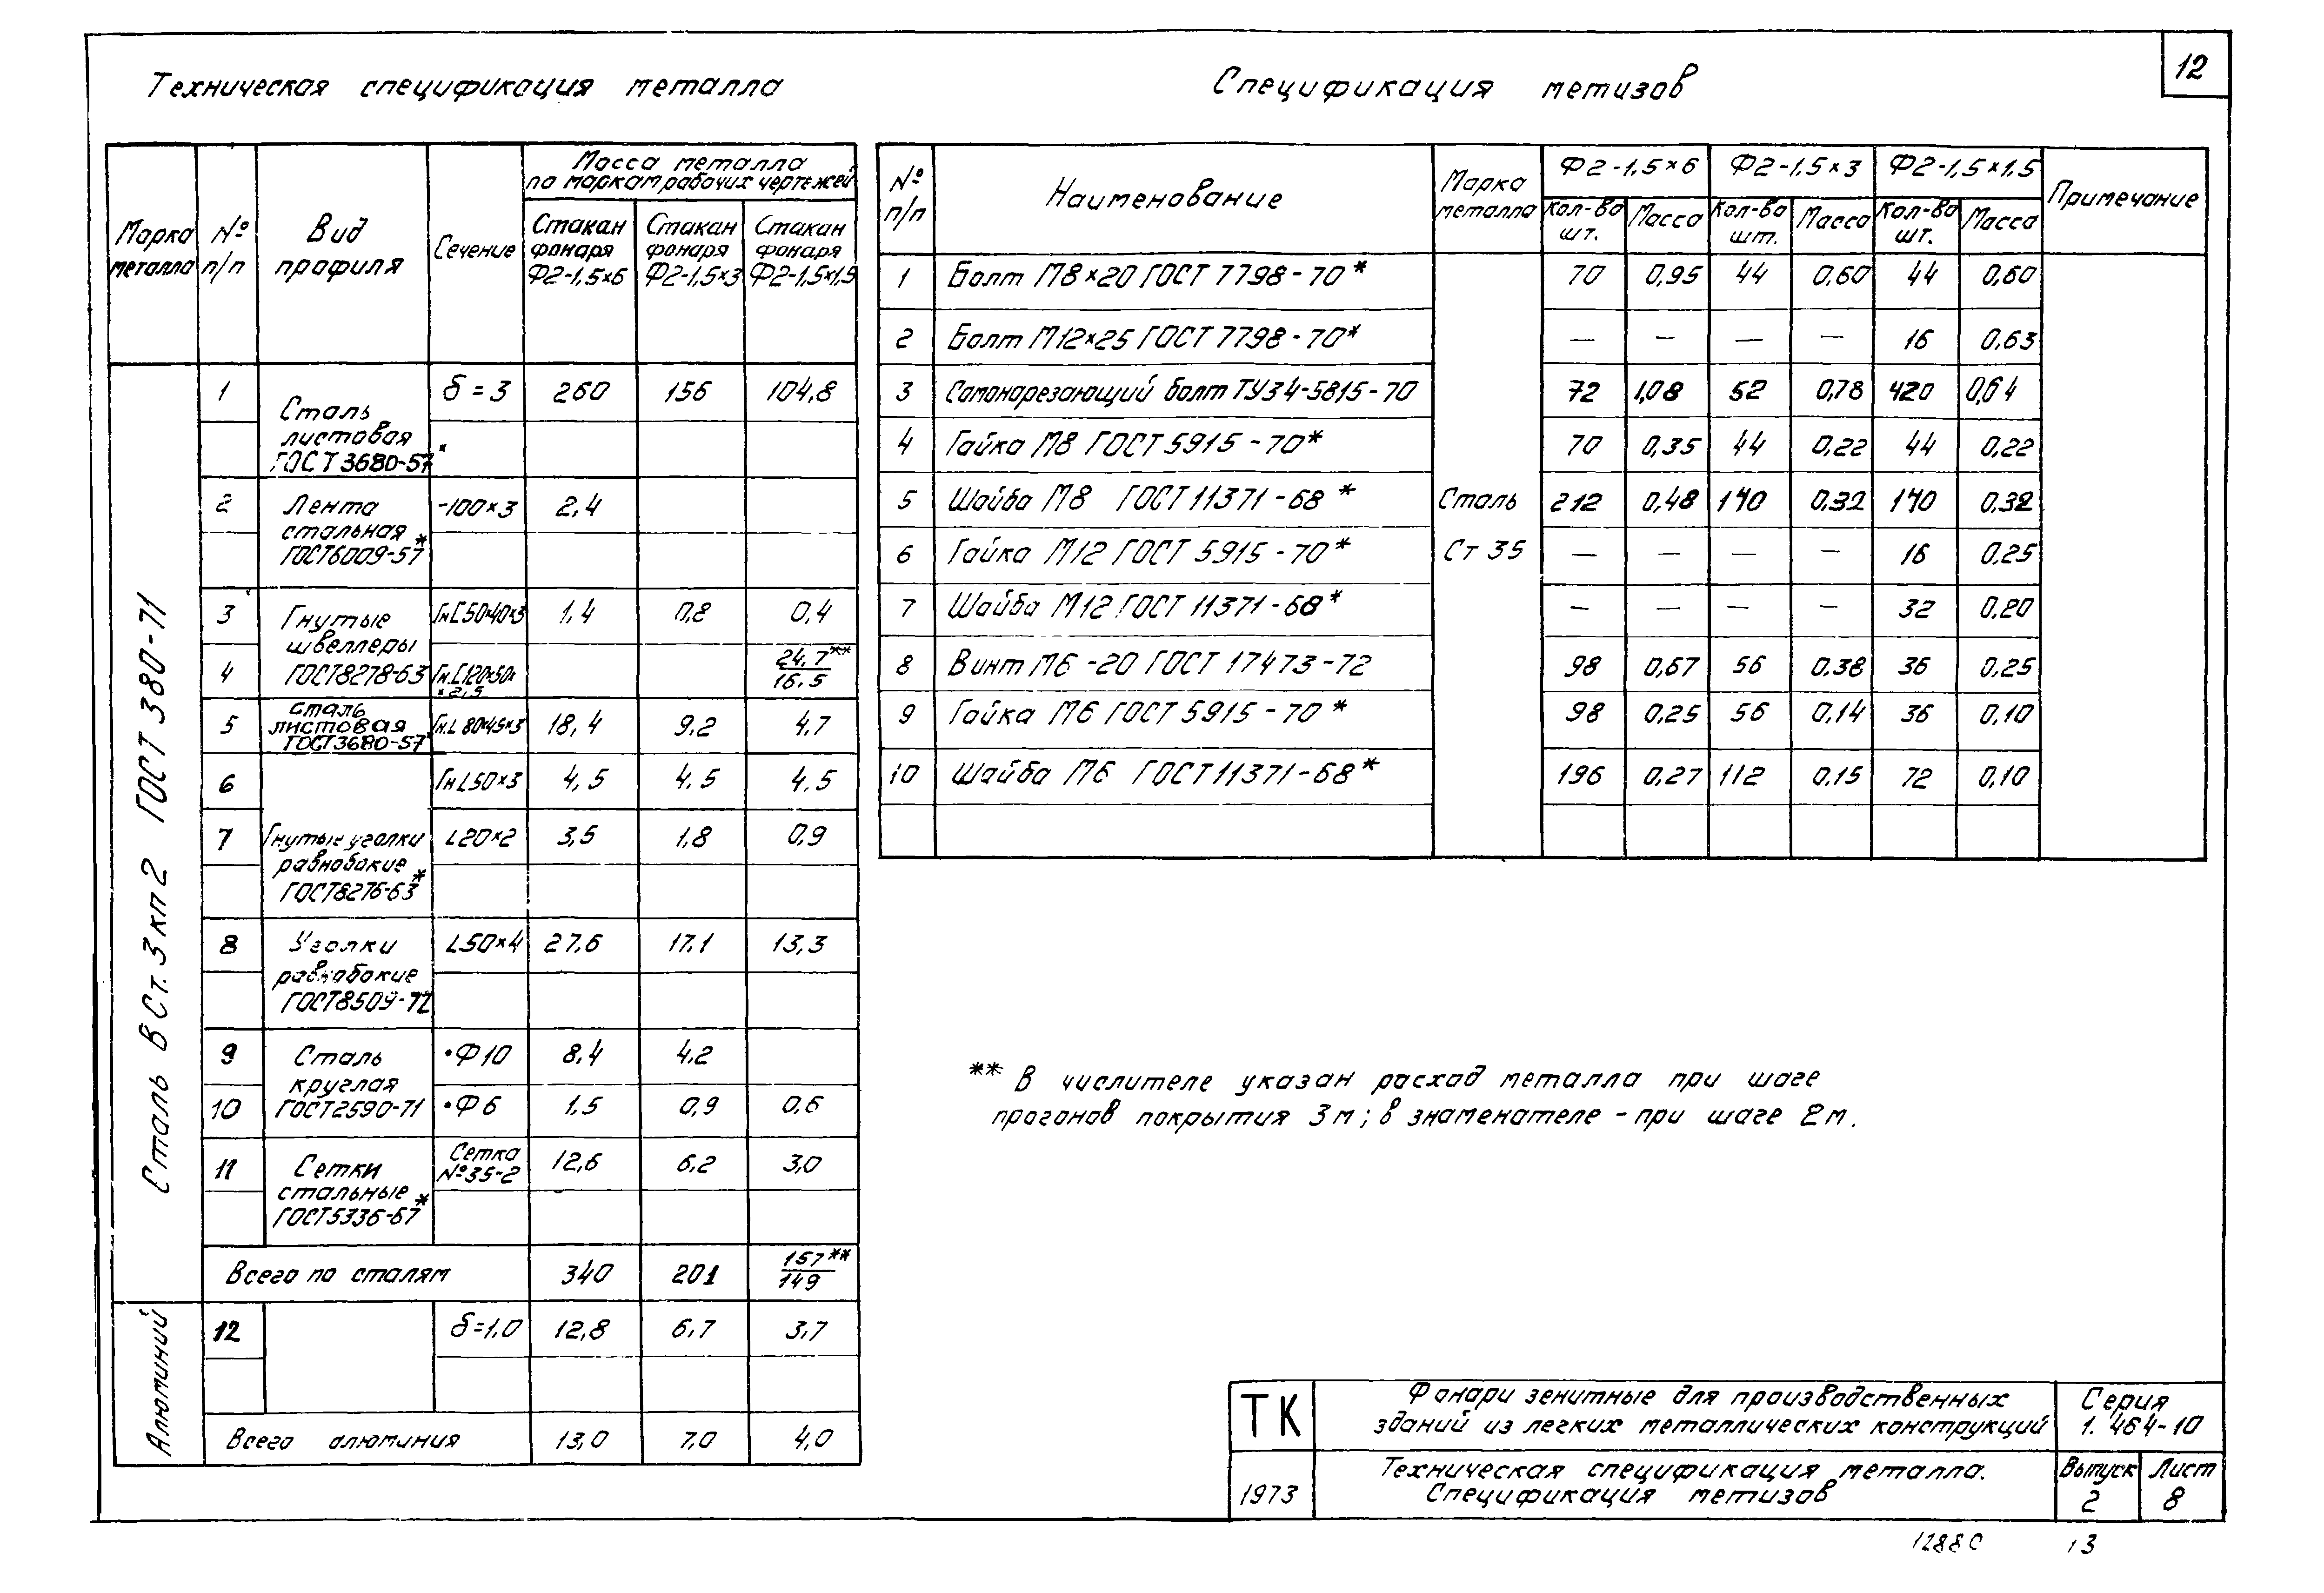 12
Техническая спецификация металла
Марка металла | № п/п | Вид профиля | Сечение | Масса металла по маркам рабочих чертежей
Стакан фонаря Ф2-1,5×6 | Стакан фонаря Ф2-1,5×3 | Стакан фонаря Ф2-1,5×1,5
Сталь В Ст.3 кп 2 ГОСТ 380-71
1 | Сталь листовая ГОСТ 3680-57* | δ = 3 | 260 | 156 | 104,8
2 | Лента стальная ГОСТ6009-57* | -100×3 | 2,4
3 | Гнутые швеллеры ГОСТ8278-63 | Гн.[50×40×3 | 1,4 | 0,8 | 0,4
4 | Гн.[120×50××2,5 | 24,7** / 16,5
5 | Сталь листовая ГОСТ3680-57* | Гн.L 80×45×3 | 18,4 | 9,2 | 4,7
6 | Гн L50×3 | 4,5 | 4,5 | 4,5
7 | Гнутые уголки равнобокие ГОСТ8276-63* | L20×2 | 3,5 | 1,8 | 0,9
8 | Уголки равнобокие ГОСТ8509-72 | L50×4 | 27,6 | 17,1 | 13,3
9 | Сталь круглая ГОСТ2590-71 | •Ф10 | 8,4 | 4,2
10 | •Ф6 | 1,5 | 0,9 | 0,6
11 | Сетки стальные ГОСТ5336-67* | Сетка №35-2 | 12,6 | 6,2 | 3,0
Всего по сталям | 340 | 201 | 157** / 149
Алюминий
12 | δ=1,0 | 12,8 | 6,7 | 3,7
Всего алюминия | 13,0 | 7,0 | 4,0
Спецификация метизов
№ п/п | Наименование | Марка металла | Ф2-1,5×6 | Ф2-1,5×3 | Ф2-1,5×1,5 | Примечание
Кол-во шт. | Масса | Кол-во шт. | Масса | Кол-во шт. | Масса
1 | Болт М8×20 ГОСТ 7798-70* | 70 | 0,95 | 44 | 0,60 | 44 | 0,60
2 | Болт М12×25 ГОСТ 7798-70* | — | — | — | — | 16 | 0,63
3 | Самонарезающий болт ТУ34-5815-70 | 72 | 1,08 | 52 | 0,78 | 420 | 0,64
4 | Гайка М8 ГОСТ 5915-70* | 70 | 0,35 | 44 | 0,22 | 44 | 0,22
5 | Шайба М8 ГОСТ 11371-68* | Сталь | 212 | 0,48 | 140 | 0,32 | 140 | 0,32
6 | Гайка М12 ГОСТ 5915-70* | Ст 35 | — | — | — | — | 16 | 0,25
7 | Шайба М12 ГОСТ 11371-68* | — | — | — | — | 32 | 0,20
8 | Винт М6-20 ГОСТ 17473-72 | 98 | 0,67 | 56 | 0,38 | 36 | 0,25
9 | Гайка М6 ГОСТ 5915-70* | 98 | 0,25 | 56 | 0,14 | 36 | 0,10
10 | Шайба М6 ГОСТ 11371-68* | 196 | 0,27 | 112 | 0,15 | 72 | 0,10
** В числителе указан расход металла при шаге
прогонов покрытия 3м; в знаменателе - при шаге 2м.
ТК
Фонари зенитные для производственных
зданий из легких металлических конструкций
Серия
1.464-10
1973
Техническая спецификация металла.
Спецификация метизов
Выпуск 2
Лист 8
12880 13